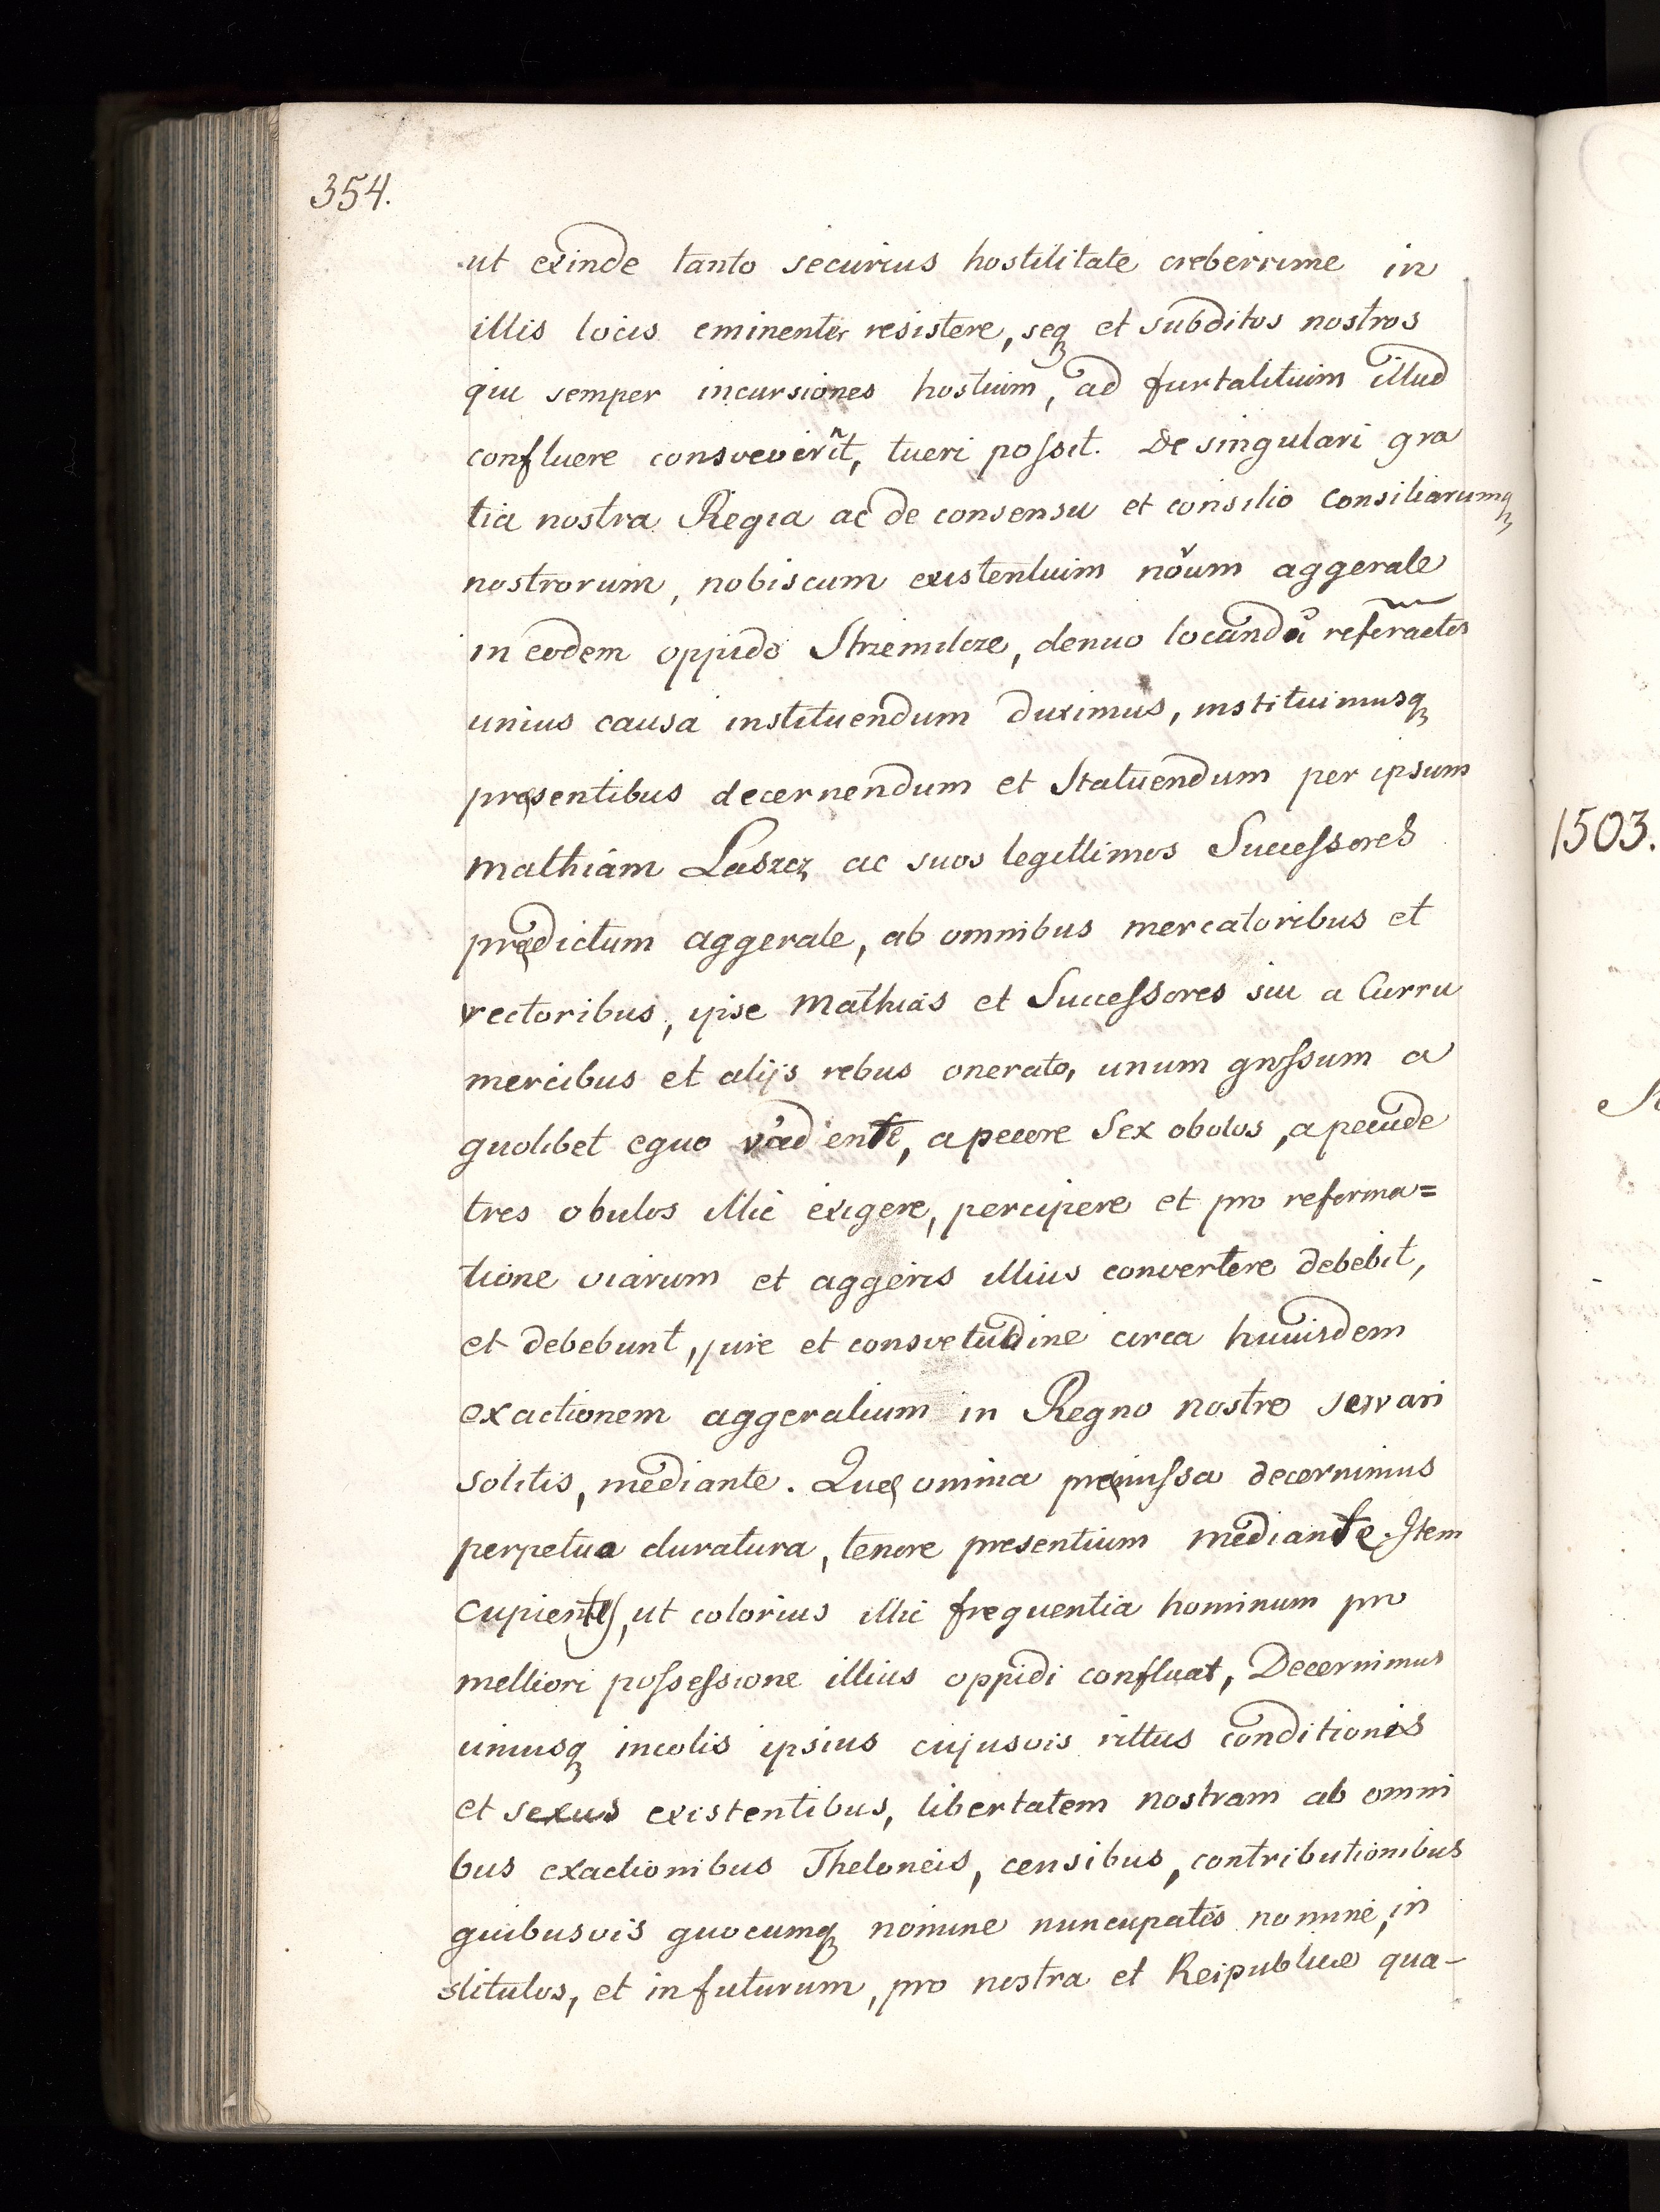 354.
ut exinde tanto securius hostilitate creberrime in
illis locis eminenter resistere, seq3 et subditos nostros
qui semper incursiones hostium, ad furtalitium illud
confluere consveverñt, tueri poſsit. De singulari gra
tia nostra Regia ac de consensu et consilio Consiliarumq3
nostrorum, nobiscum existentium noũm aggerale
in eodem oppido Strzemilcze, denuo locando
unius causa instituendum duximus, instituimusq3
pręsentibus decernendum et Statuendum per ipsum
Mathiam Laszcz ac suos legittimos Succeſsores
prędictum aggerale, ab omnibus mercatoribus et
vectoribus, ipse Mathias et Succeſsores sui a Curru
mercibus et alijs rebus onerato, unum groſsum a
quolibet equo vadente, a pecore Sex obolos, a pecude
tres obulos illic exigere, percipere et pro reforma=
tione viarum et aggeris illius convertere debebit,
et debebunt, jure et consvetudine circa huiusdem
exactionem aggeralium in Regno nostro servari
solitis, mediante. Quę omnia pręmiſsa decernimus
perpetua duratura, tenore presentium mediante. Item
Cupientes, ut colorius illic frequentia hominum pro
melliori poſseſsione illius oppidi confluat, Decernimus
uniusq3 incolis ipsius cujusvis rittus conditionis
et sexus existentibus, libertatem nostram ab omni
bus exactionibus Theloneis, censibus, contributionibus
quibusvis quocumq3 nomine nuncupatis nomine, in
stitulos, et in futurum, pro nostra et Reipublice qua-
1503.